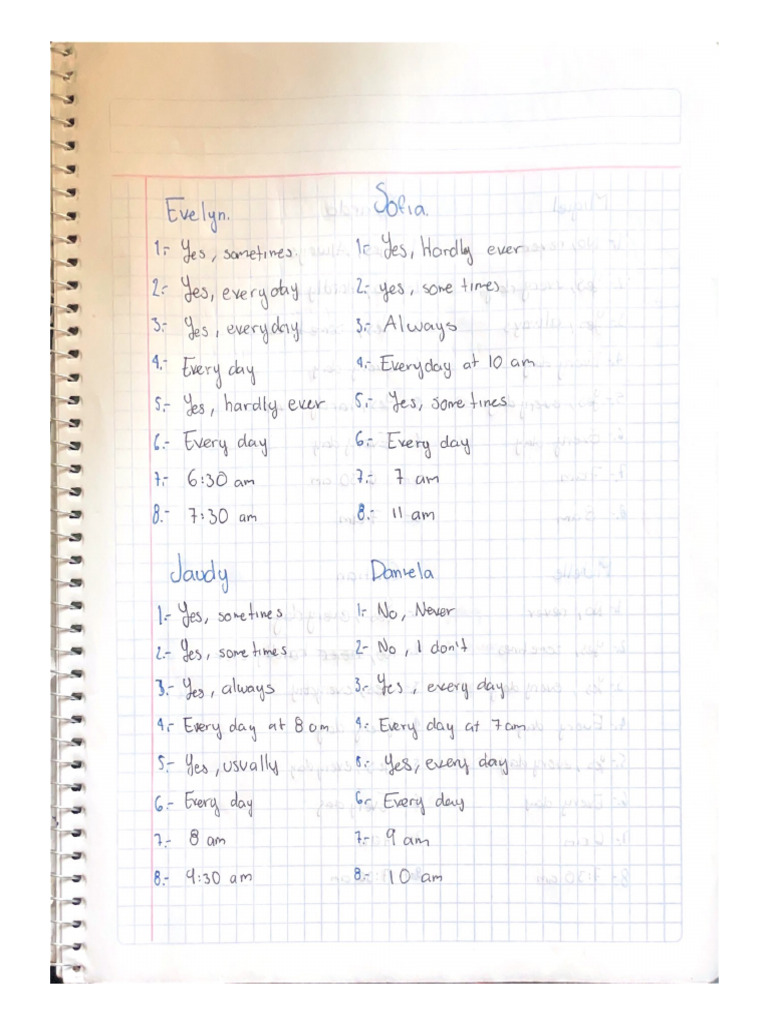 Evelyn.
1.- Yes, sometimes.
2.- Yes, everyday
3.- Yes, everyday
4.- Every day
5.- Yes, hardly ever
6.- Every day
7.- 6:30 am
8.- 7:30 am
Sofia.
1.- Yes, Hardly ever
2.- yes, some times
3.- Always
4.- Everyday at 10 am
5.- Yes, sometimes
6.- Every day
7.- 7 am
8.- 11 am
Jaudy
1.- Yes, sometimes
2.- Yes, sometimes
3.- Yes, always
4.- Every day at 8 am
5.- Yes, usually
6.- Every day
7.- 8 am
8.- 9:30 am
Daniela
1.- No, Never
2.- No, I don't
3.- Yes, every day
4.- Every day at 7am
5.- Yes, every day
6.- Every day
7.- 9 am
8.- 10 am